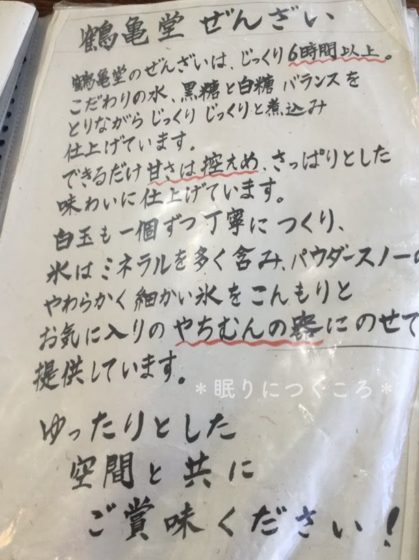 鶴亀堂 ぜんざい
鶴亀堂のぜんざいは、じっくり6時間以上。
こだわりの水、黒糖と白糖 バランスを
とりながら じっくり じっくりと煮込み
仕上げています。
できるだけ 甘さは控えめ、さっぱりとした
味わいに 仕上げています。
白玉も一個ずつ丁寧に つくり、
氷はミネラルを多く含み、パウダースノーの
やわらかく 細かい氷をこんもりと
お気に入りの やちむんの器にのせて
提供しています。
＊眠りにつくころ＊
ゆったりとした
空間と共に
ご賞味ください！